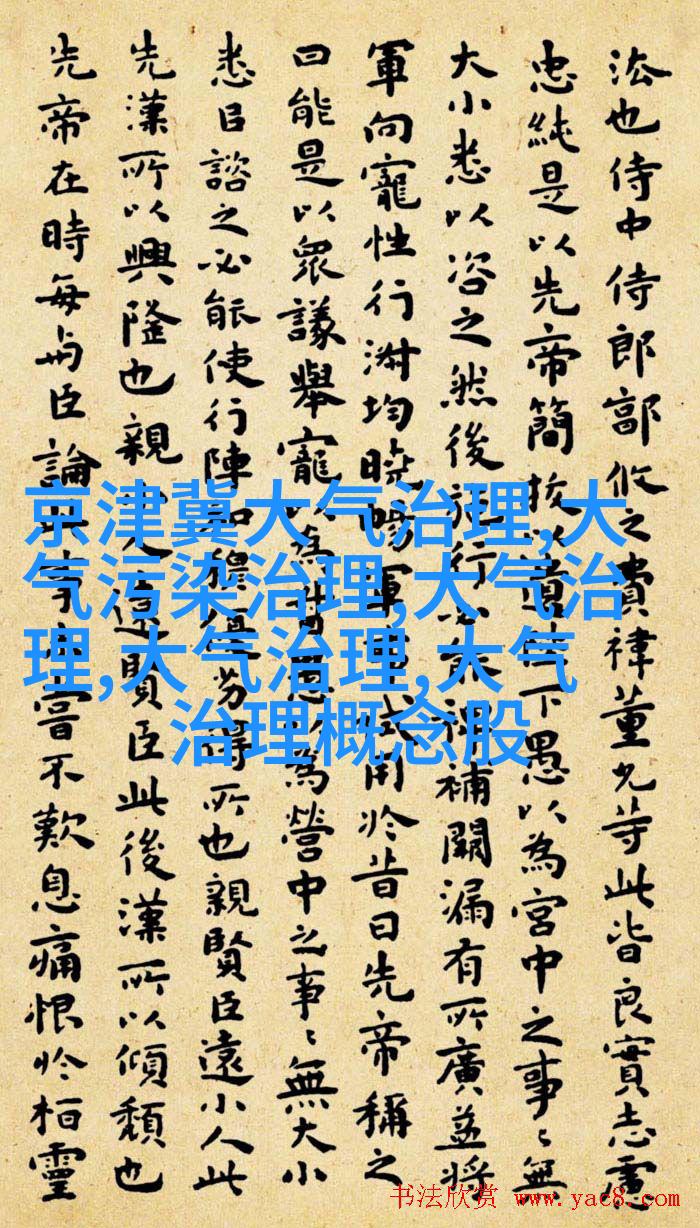 法也侍中侍郎郭攸之費禕董允等此皆良實志慮
忠純是以先帝簡拔以遺陛下愚以為宮中之事〻無
大小悉以咨之然後施行必能裨補闕漏有所廣益將
軍向寵性行淑均曉暢軍事試用於昔日先帝稱之
曰能是以眾議舉寵以為督愚以為營中之事〻無大小
悉以諮之必能使行陣和穆優劣得所也親賢臣遠小人此
先漢所以興隆也親小人遠賢臣此後漢所以傾頹也
先帝在時每與臣論此事未嘗不歎息痛恨於桓靈
京津冀大气治理,大
气污染治理,大气治
理,大气治理,大气
治理概念股
书法欣赏 www.yac8.com